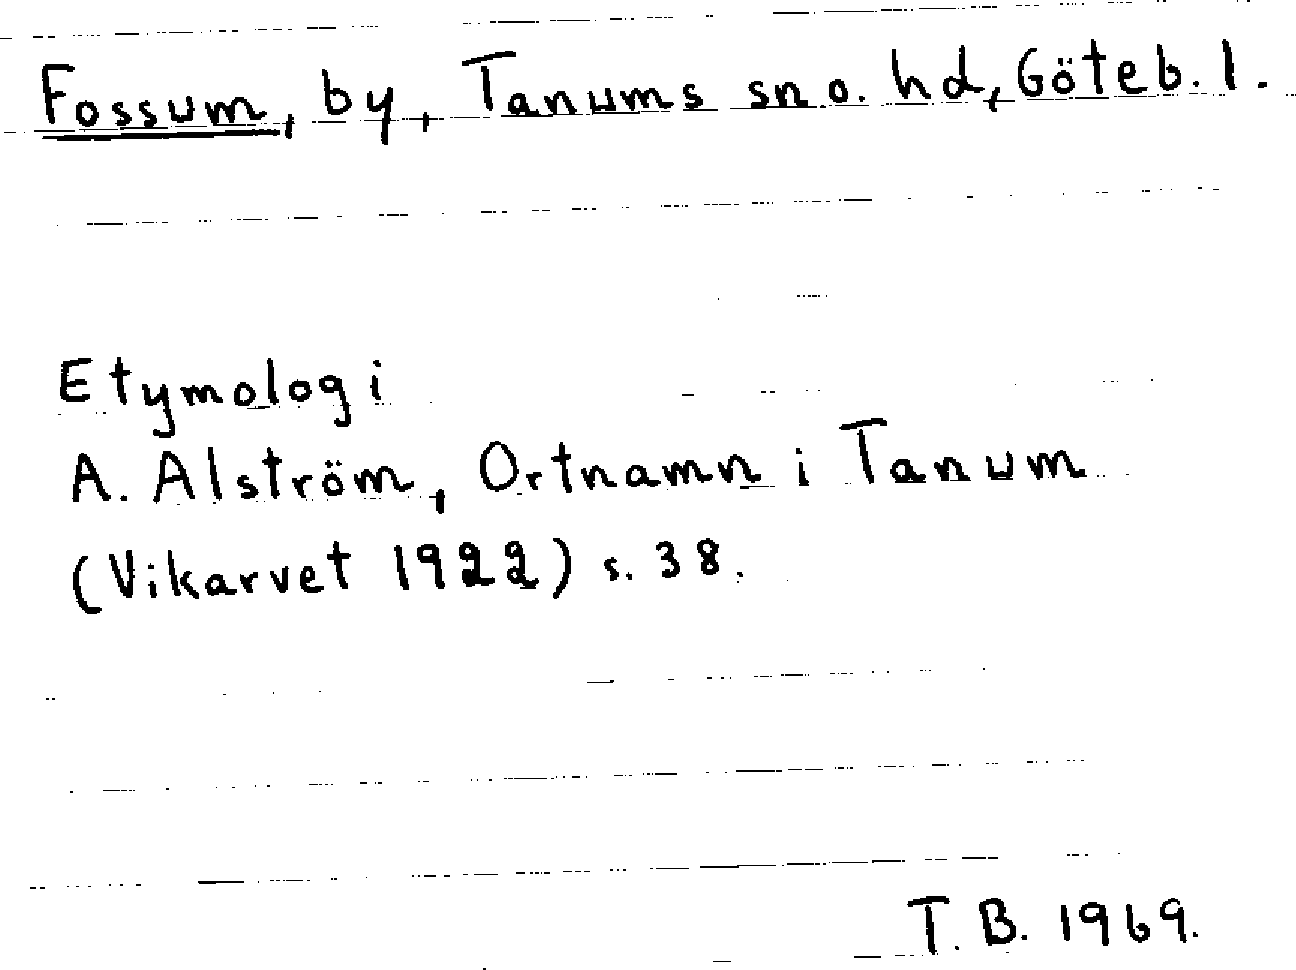 Fossum, by, Tanums sn o. hd, Göteb. l.
Etymologi
A. Alström, Ortnamn i Tanum
(Vikarvet 1922) s. 38.
T. B. 1969.